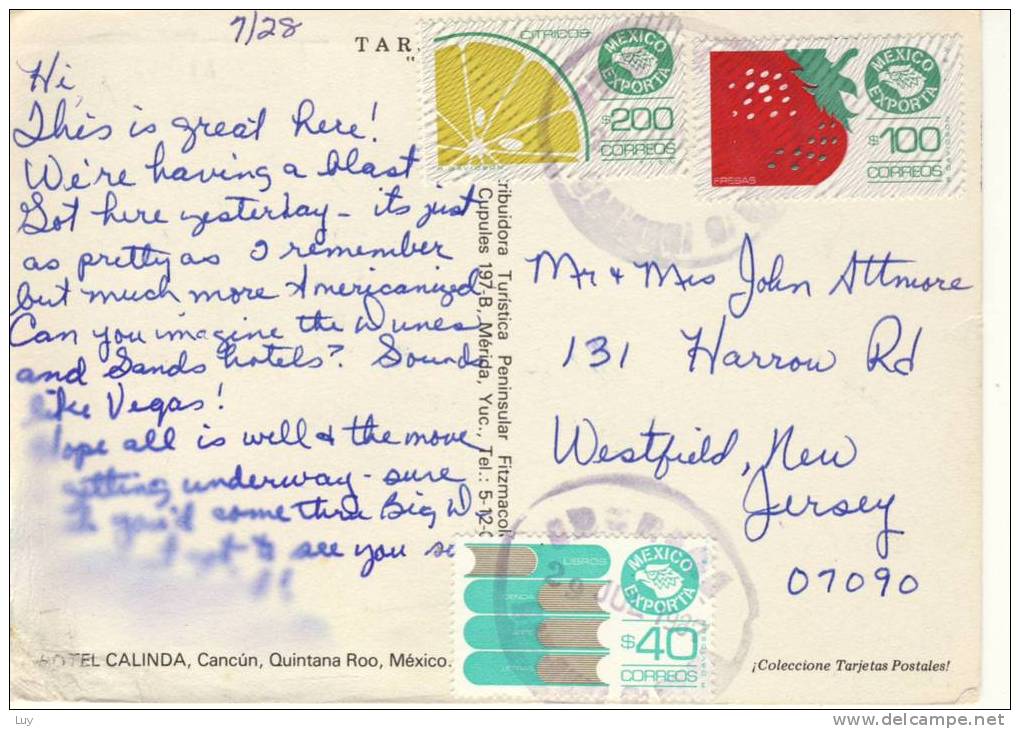 7/28
TAR
Hi,
This is great here!
We're having a blast!
Got here yesterday - its just
as pretty as I remember
but much more Americanized
Can you imagine the Dunes
and Sands hotels? Sounds
like Vegas!
Hope all is well & the move
getting underway - sure
you'd come thru Big D
to see you
HOTEL CALINDA, Cancún, Quintana Roo, México.
ribuidora Turística Peninsular Fitzmacol
Cupules 197-B, Mérida, Yuc., Tel.: 5-12-
CITRICOS
MEXICO
EXPORTA
$200
CORREOS
FRESAS
MEXICO
EXPORTA
$100
CORREOS
Mr & Mrs John Attmore
131 Harrow Rd
Westfield, New
Jersey
07090
LIBROS
MEXICO
EXPORTA
$40
CORREOS
29 JUL
¡Coleccione Tarjetas Postales!
Luy
delcampe.net